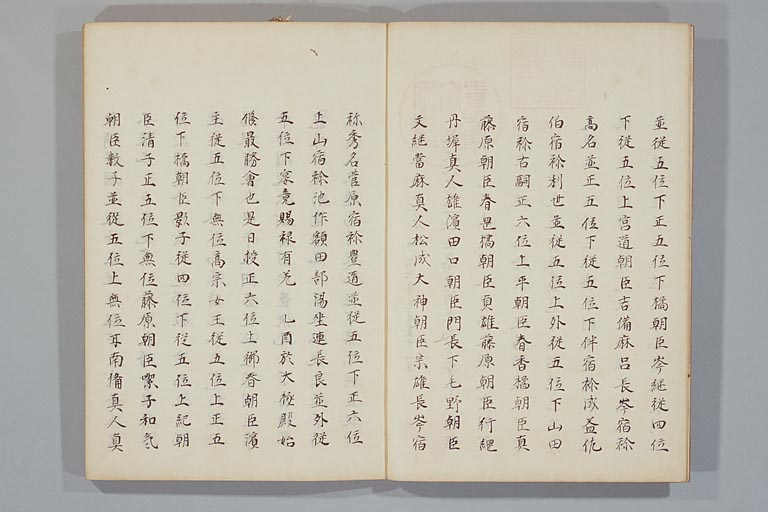 並従五位下正五位下橘朝臣岑継従四位
下従五位上宮道朝臣吉備麻呂長岑宿祢
高名並正五位下従五位下伴宿祢成益仇
伯宿祢利世並従五位上外従五位下山田
宿祢古嗣正六位上平朝臣春香橘朝臣真
藤原朝臣春岡橘朝臣貞雄藤原朝臣行縄
丹墀真人雄濱田口朝臣門長下毛野朝臣
文継當麻真人松成大神朝臣宗雄長岑宿
祢秀名菅原宿祢豊道並従五位下正六位
上山宿祢池作額田部湯坐連長良並外従
五位下宴竟賜禄有差乙酉於大極殿始
修最勝會也是日授正六位上御春朝臣濱
主従五位下無位高宗女王従五位上正五
位下橘朝臣影子従四位下従五位上紀朝
臣清子正五位下無位藤原朝臣 子和気
朝臣 子並従五位上無位 南備真人真